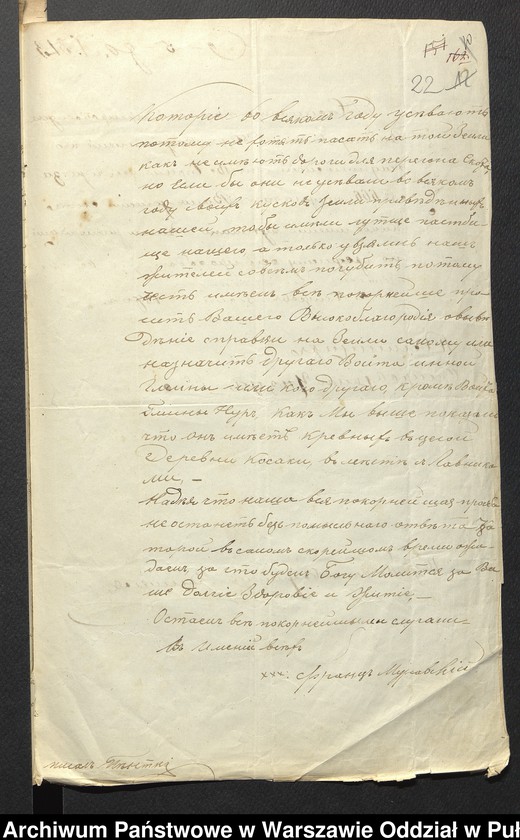 22
которіе во всякомъ году успвають
потому не хотятъ пасать на той земли
какъ не имѣютъ дороги для перегона скоту
но если бы они не успвали во всякомъ
году своихъ кусковъ земли
нашей, чтобы имѣли лутше пастби-
ще нашего а только узялись насъ
жителей совсѣмъ погубить потому
честь имѣемъ всѣ покорнейше про-
сить Вашего Высокоблагородія о выве-
дѣніе справки на земли самому или
назначить другаго Войта инной
Гмины или кого другаго, кромѣ Войта
Гмины Нуръ, какъ мы выше показали
что онъ имѣетъ кревныхъ въ целой
Деревни Косаки, вместѣ съ лавника-
ми, –
Надѣясь что наша все покорнейшая прозба
не останетъ безъ помыслнаго отвѣта за
торой въ самомъ скорейшомъ время ожи-
даемъ за сто будемъ Богу молится за Ва-
ше долгіе здоровіе и житіе, –
Остаемся всѣ покорнейшыми слугами –
Въ имений всѣхъ
xxx. Францъ Муравскій
писалъ
Archiwum Państwowe w Warszawie Oddział w Puł